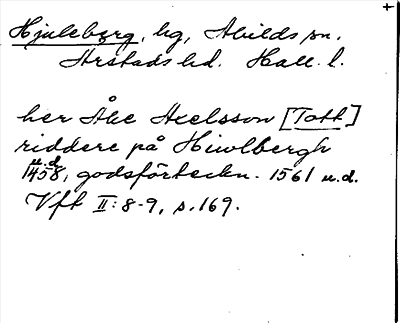 Hjuleberg, hg, Abilds sn.
Årstads hd. Hall. l.
her Åke Axelsson [Tott]
riddere på Hiwlbergh
u.d.
1458, godsförteckn. 1561 u.d.
Vft II: 8-9, s. 169.